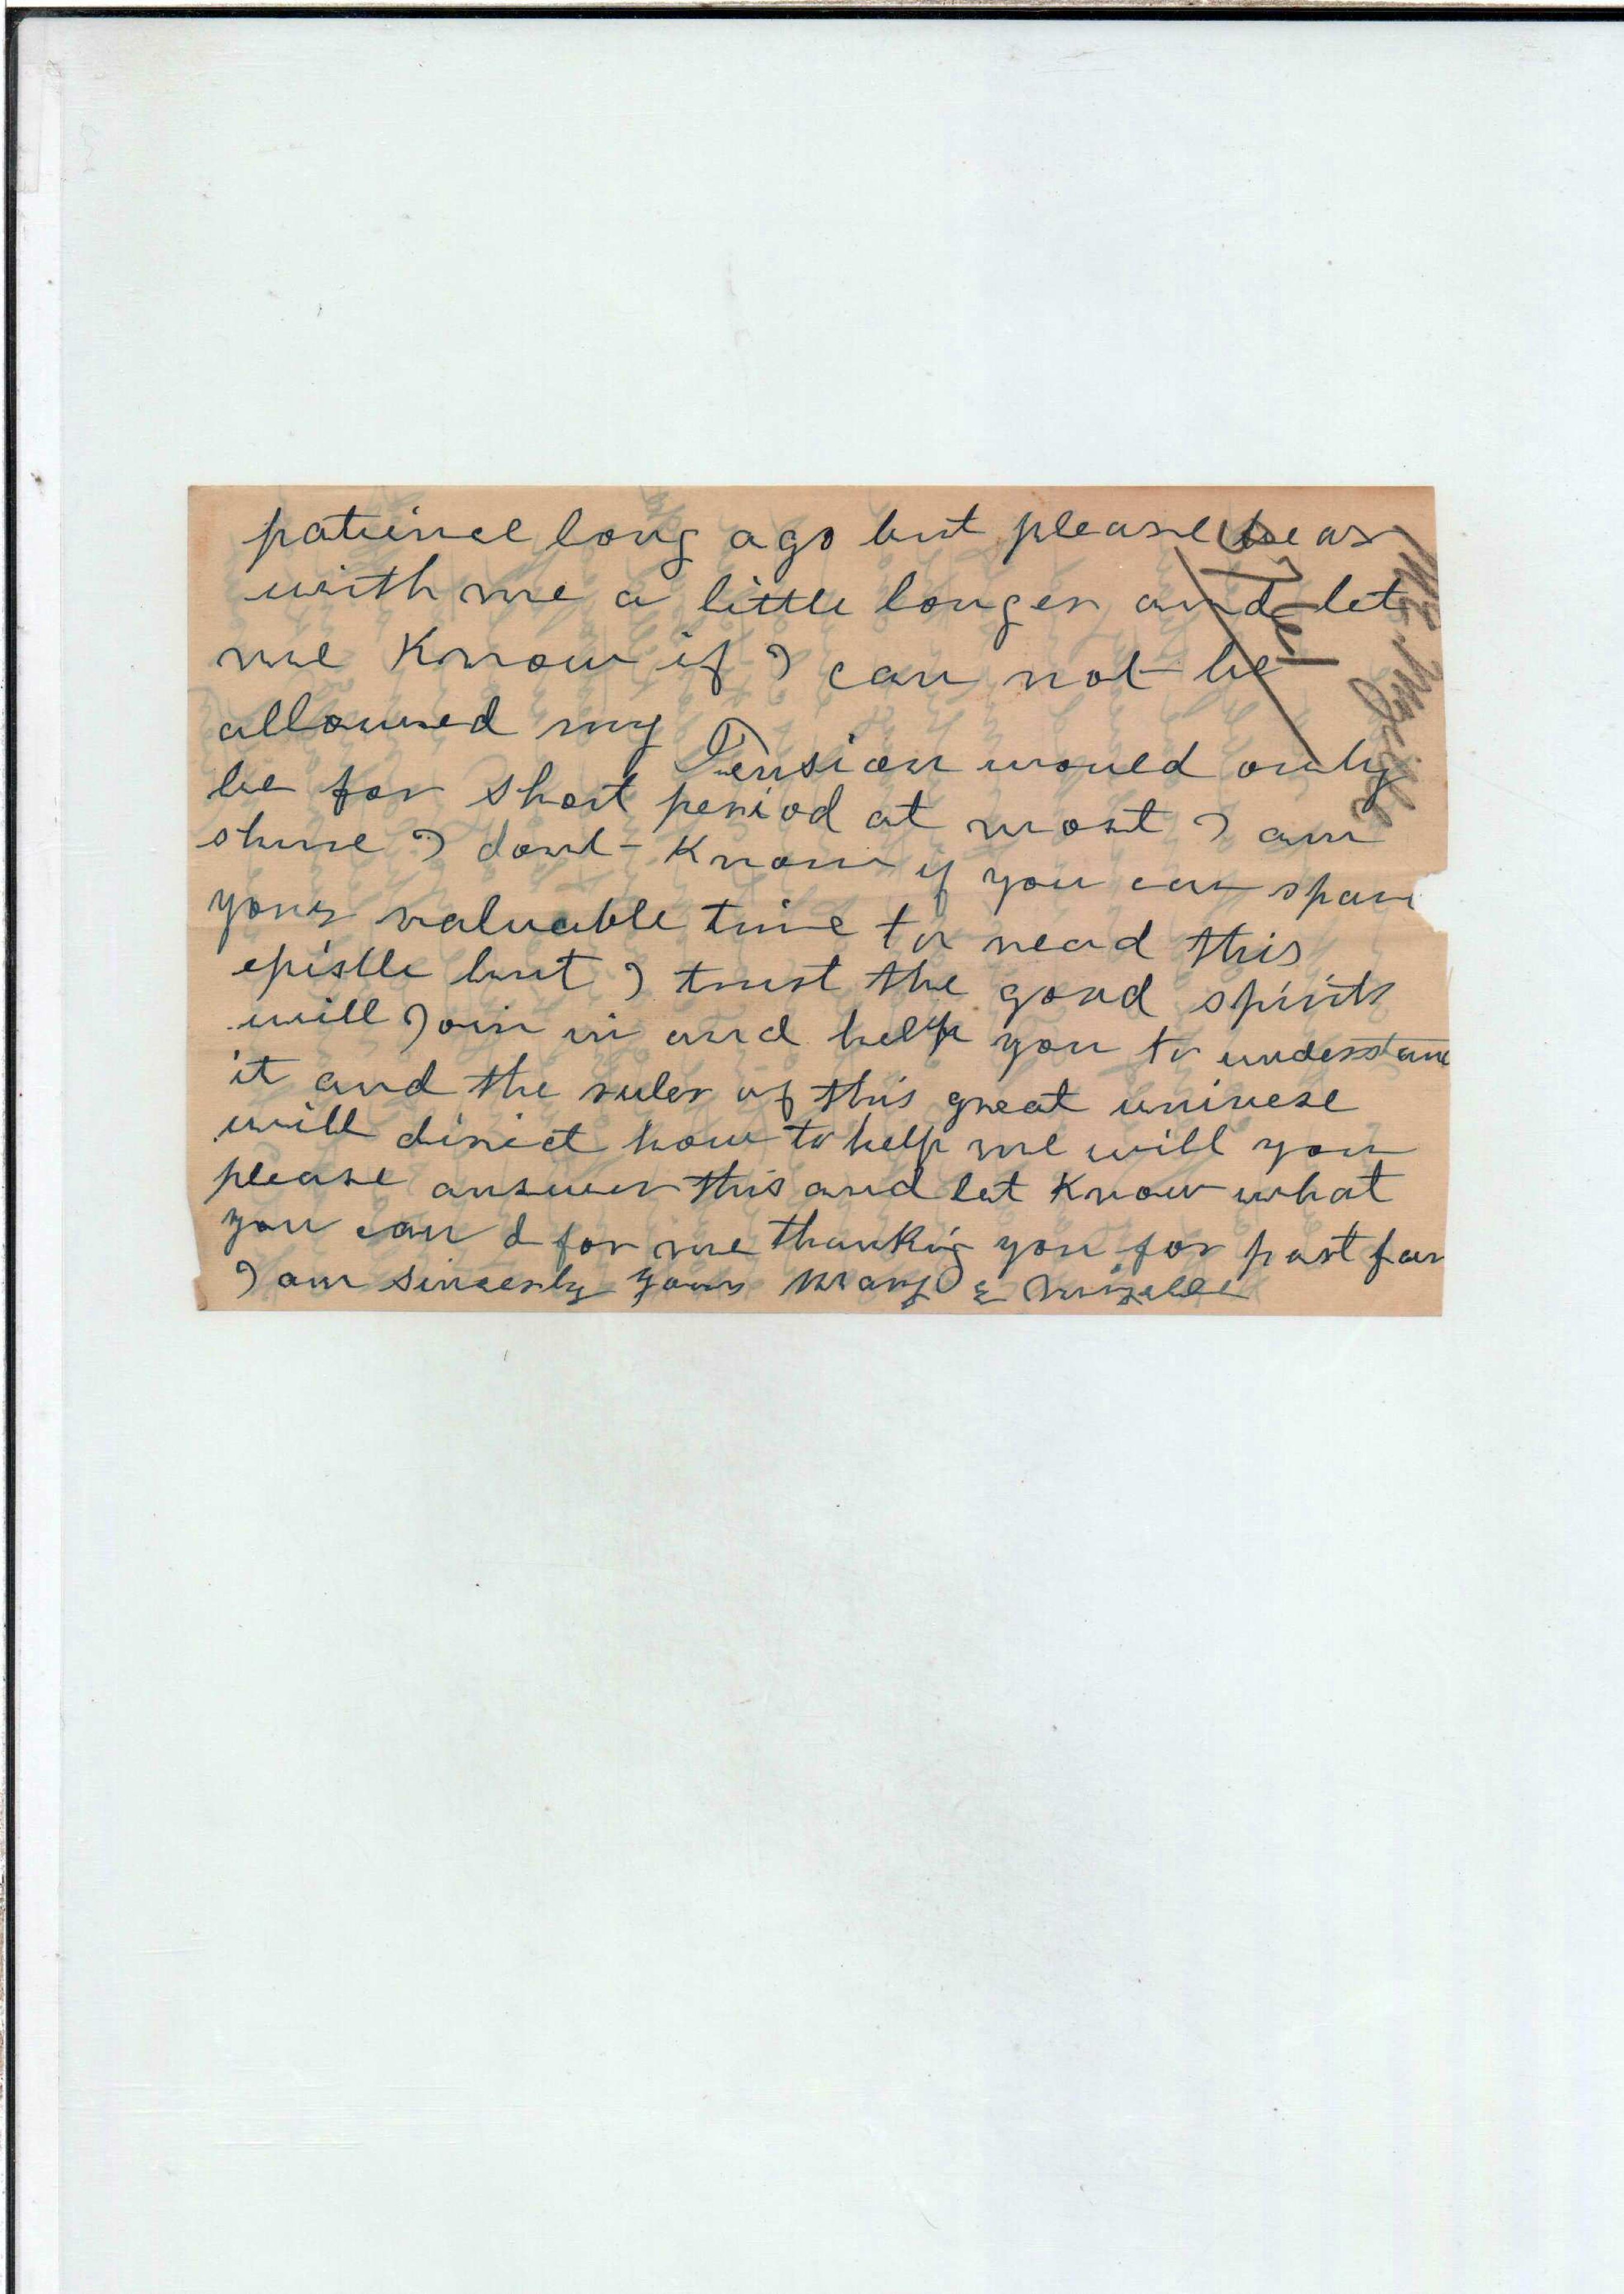 patience long ago but please bear
with me a little longer and let
me Know if I can not be
allowed my Pension would only
be for short period at most I am
shure I dont Know if you can spare
your valuable time to read this
epistle but I trust the good spirits
will Join in and help you to understand
it and the ruler of this great univese
will direct how to help me will you
please answer this and let Know what
you can d for me thanking you for past fav
I am sincerly yours Mary E Mizelle